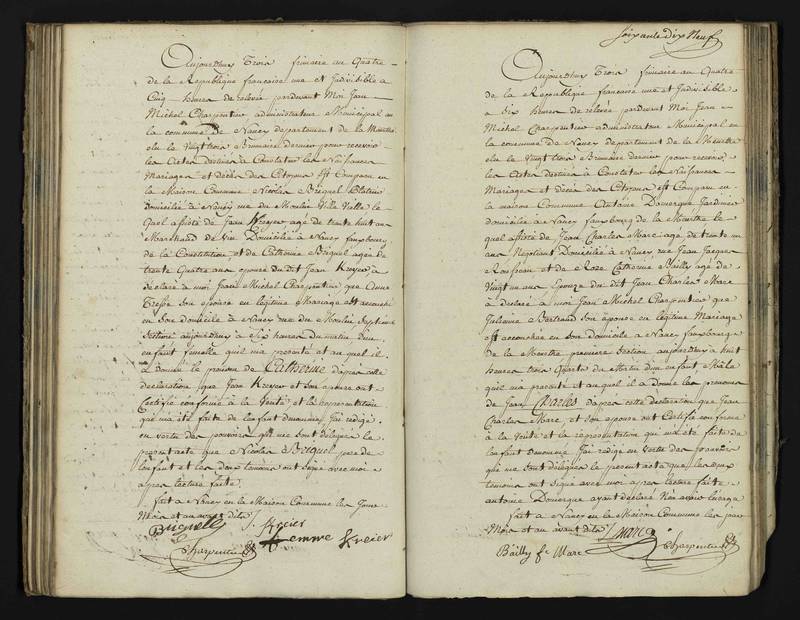 Aujourdhuy Trois frimaire an Quatre
de la Republique francaise une et Indivisible a
Cinq heures de relevée pardevant Moi Jean
Michel Charpentier administrateur Municipal en
la commune de Nancy departement de la Meurthe
elu le Vingt trois Brumaire dernier pour recevoir
les Actes destinés à Constater les Naissances
Mariages et décès des Citoyens Est Comparu en
la Maison Commune Nicolas Briquel
domicilié à Nancy rue du Moulin Ville Vieille le
quel assisté de Jean Kreyer agé de trente huit ans
Marchand de Vin Domicilié à Nancy fauxbourg
de la Constitution et de Catherine Briquel agée de
trente Quatre ans epouse du dit Jean Kreyer a
déclaré à moi Jean Michel Charpentier que Anne
son épouse en légitime Mariage est accouchée
en Son domicile à Nancy rue du Moulin Septieme
Section aujourdhuy à Six heures du matin d'un
enfant femelle qu'il m'a presenté et auquel il
a donné le prénom de Catherine d'après cette
declaration que Jean Kreyer et son epouse ont
Certifié conforme à la Verité et la représentation
qui m'a été faite de l'enfant denommé, J'ai rédigé
en vertu des pouvoirs qui me sont délégués le
present acte que Nicolas Briquel pere de
l'enfant et les deux temoins ont signé avec moi
apres lecture faite.
fait à Nancy en la Maison Commune les Jour
Mois et an avant dits
Briquelle J. Kreier
femme Kreier
Charpentier
Soixante dix Neuf
Aujourdhuy Trois frimaire an Quatre
de la Republique francaise une et Indivisible
a Six heures de relevée pardevant Moi Jean
Michel Charpentier administrateur Municipal en
la commune de Nancy departement de la Meurthe
elu le Vingt trois Brumaire dernier pour recevoir
les Actes destinés à Constater les Naissances
Mariages et décès des Citoyens Est Comparu en
la maison Commune Antoine Domergue Jardinier
domicilié à Nancy fauxbourg de la Meurthe le
quel assisté de Jean Charles Marc agé de trente un
ans Negotiant Domicilié à Nancy rue Jean Jacques
Rousseau et de Roze Catherine Bailly agé de
Vingt un ans Epouze du dit Jean Charles Marc
a déclaré à moi Jean Michel Charpentier que
Julienne Bertrand son epouse en légitime Mariage
est accouchée en Son domicile à Nancy fauxbourg
de la Meurthe premiere Section aujourdhuy à huit
heures trois Quarts du Matin d'un enfant Mâle
qu'il m'a presenté et auquel il a donné les prenoms
de Jean Charles d'apres cette déclaration que Jean
Charles Marc et son epouse ont Certifié conforme
à la Verité et la représentation qui m'a été faite de
l'enfant denommé J'ai rédigé en Vertu des pouvoirs
qui me sont délégués le present acte que les deux
temoins ont signé avec moi apres lecture faite
antoine Domergue ayant déclaré
fait à Nancy en la Maison Commune les jour
Mois et an avant dits J marc
Bailly fe Marc Charpentier